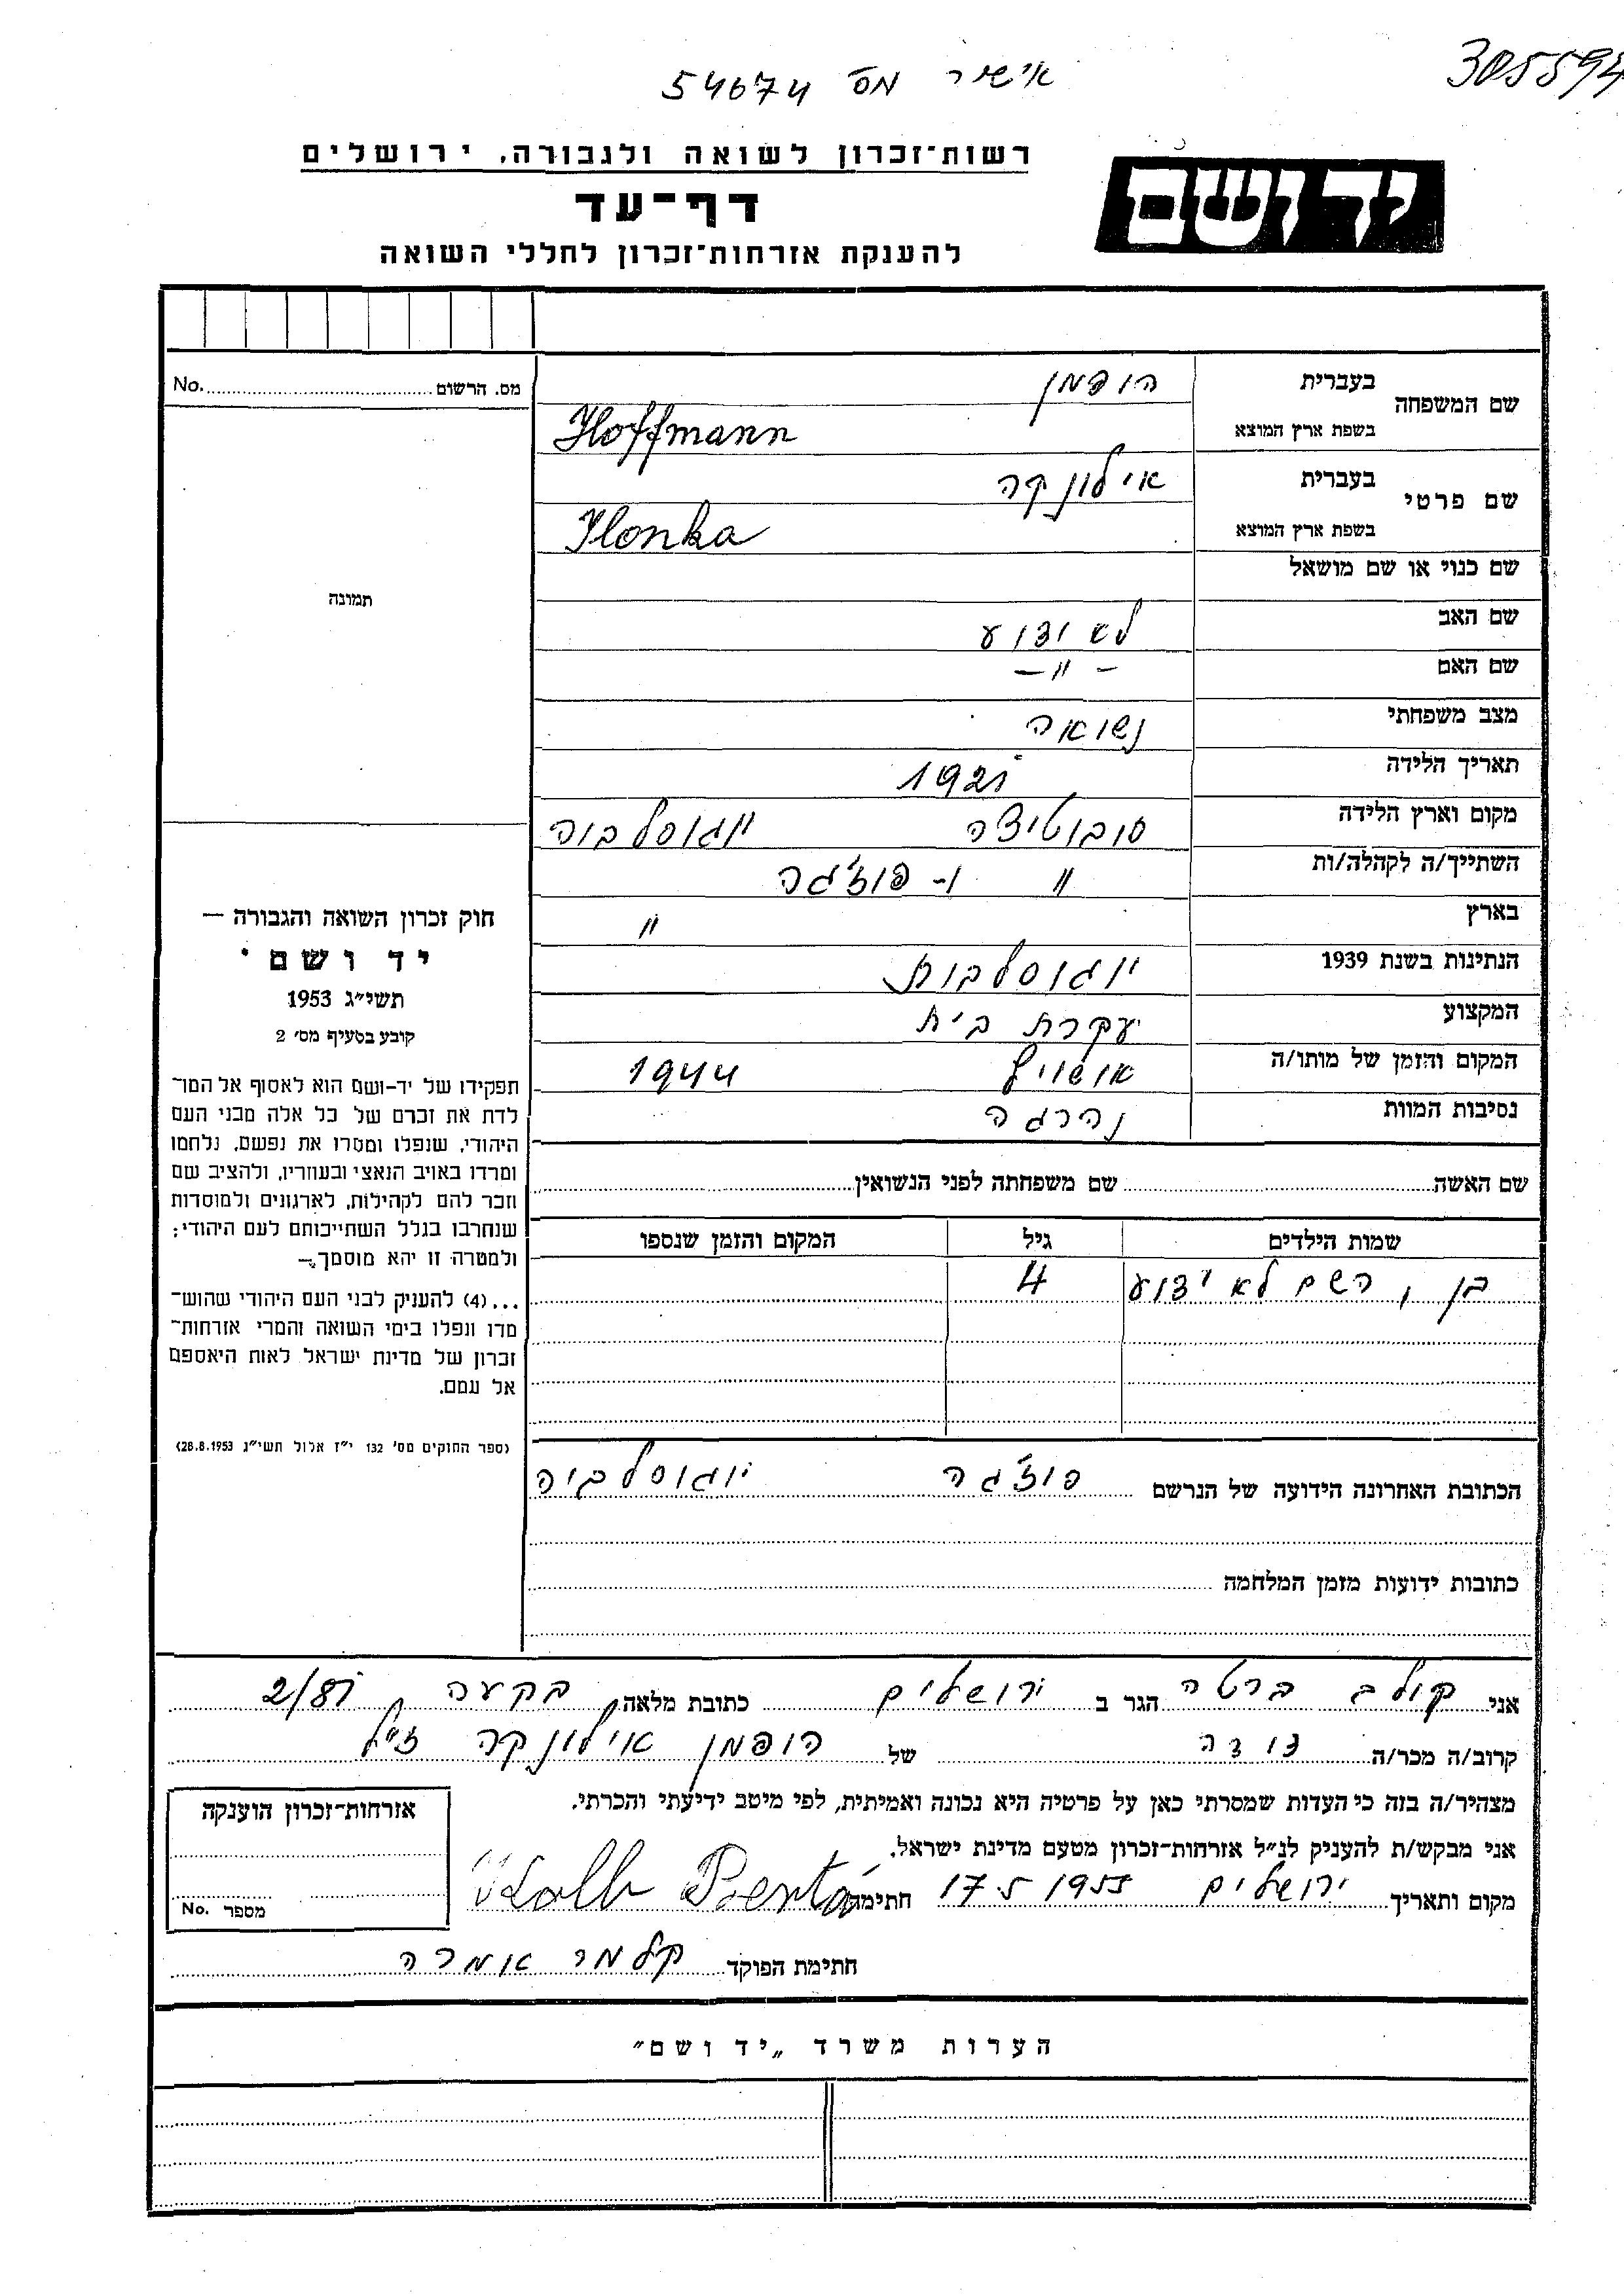 305594
אישור מס 54674
רשות־זכרון לשואה ולגבורה, ירושלים
ידושם
דף־עד
להענקת אזרחות־זכרון לחללי השואה
No. מס. הרשום
תמונה
שם המשפחה
בעברית הופמן
בשפת ארץ המוצא Hoffmann
שם פרטי
בעברית אילונקה
בשפת ארץ המוצא Ilonka
שם כנוי או שם מושאל
שם האב לא ידוע
שם האם – 〃 –
מצב משפחתי נשואה
תאריך הלידה 1921
מקום וארץ הלידה סובוטיצה יוגוסלביה
השתייך/ה לקהלה/ות 〃 ו- פוז'גה
בארץ 〃
הנתינות בשנת 1939 יוגוסלבית
המקצוע עקרת בית
המקום והזמן של מותו/ה אושויץ 1944
נסיבות המוות נהרגה
חוק זכרון השואה והגבורה —
יד ושם
תשי״ג 1953
קובע בסעיף מס׳ 2
תפקידו של יד-ושם הוא לאסוף אל המו־
לדת את זכרם של כל אלה מבני העם
היהודי, שנפלו ומסרו את נפשם, נלחמו
ומרדו באויב הנאצי ובעוזריו, ולהציב שם
וזכר להם לקהילות, לארגונים ולמוסדות
שנחרבו בגלל השתייכותם לעם היהודי;
ולמטרה זו יהא מוסמך—
...(4) להעניק לבני העם היהודי שהוש־
מדו ונפלו בימי השואה והמרי אזרחות־
זכרון של מדינת ישראל לאות היאספם
אל עמם.
(ספר החוקים מס׳ 132 י״ז אלול תשי״ג 28.8.1953)
שם האשה שם משפחתה לפני הנשואין
שמות הילדים גיל המקום והזמן שנספו
בן, השם לא ידוע 4
הכתובת האחרונה הידועה של הנרשם פוז'גה יוגוסלביה
כתובות ידועות מזמן המלחמה
אני קולב ברטה הגר ב ירושלים כתובת מלאה בקעה 2/81
קרוב/ה מכר/ה דודה של הופמן אילונקה ז״ל
מצהיר/ה בזה כי העדות שמסרתי כאן על פרטיה היא נכונה ואמיתית, לפי מיטב ידיעתי והכרתי.
אני מבקש/ת להעניק לנ״ל אזרחות־זכרון מטעם מדינת ישראל.
מקום ותאריך ירושלים 17.5.1955 חתימה Kolb Berta
אזרחות־זכרון הוענקה
No. מספר
חתימת הפוקד
הערות משרד „יד ושם״